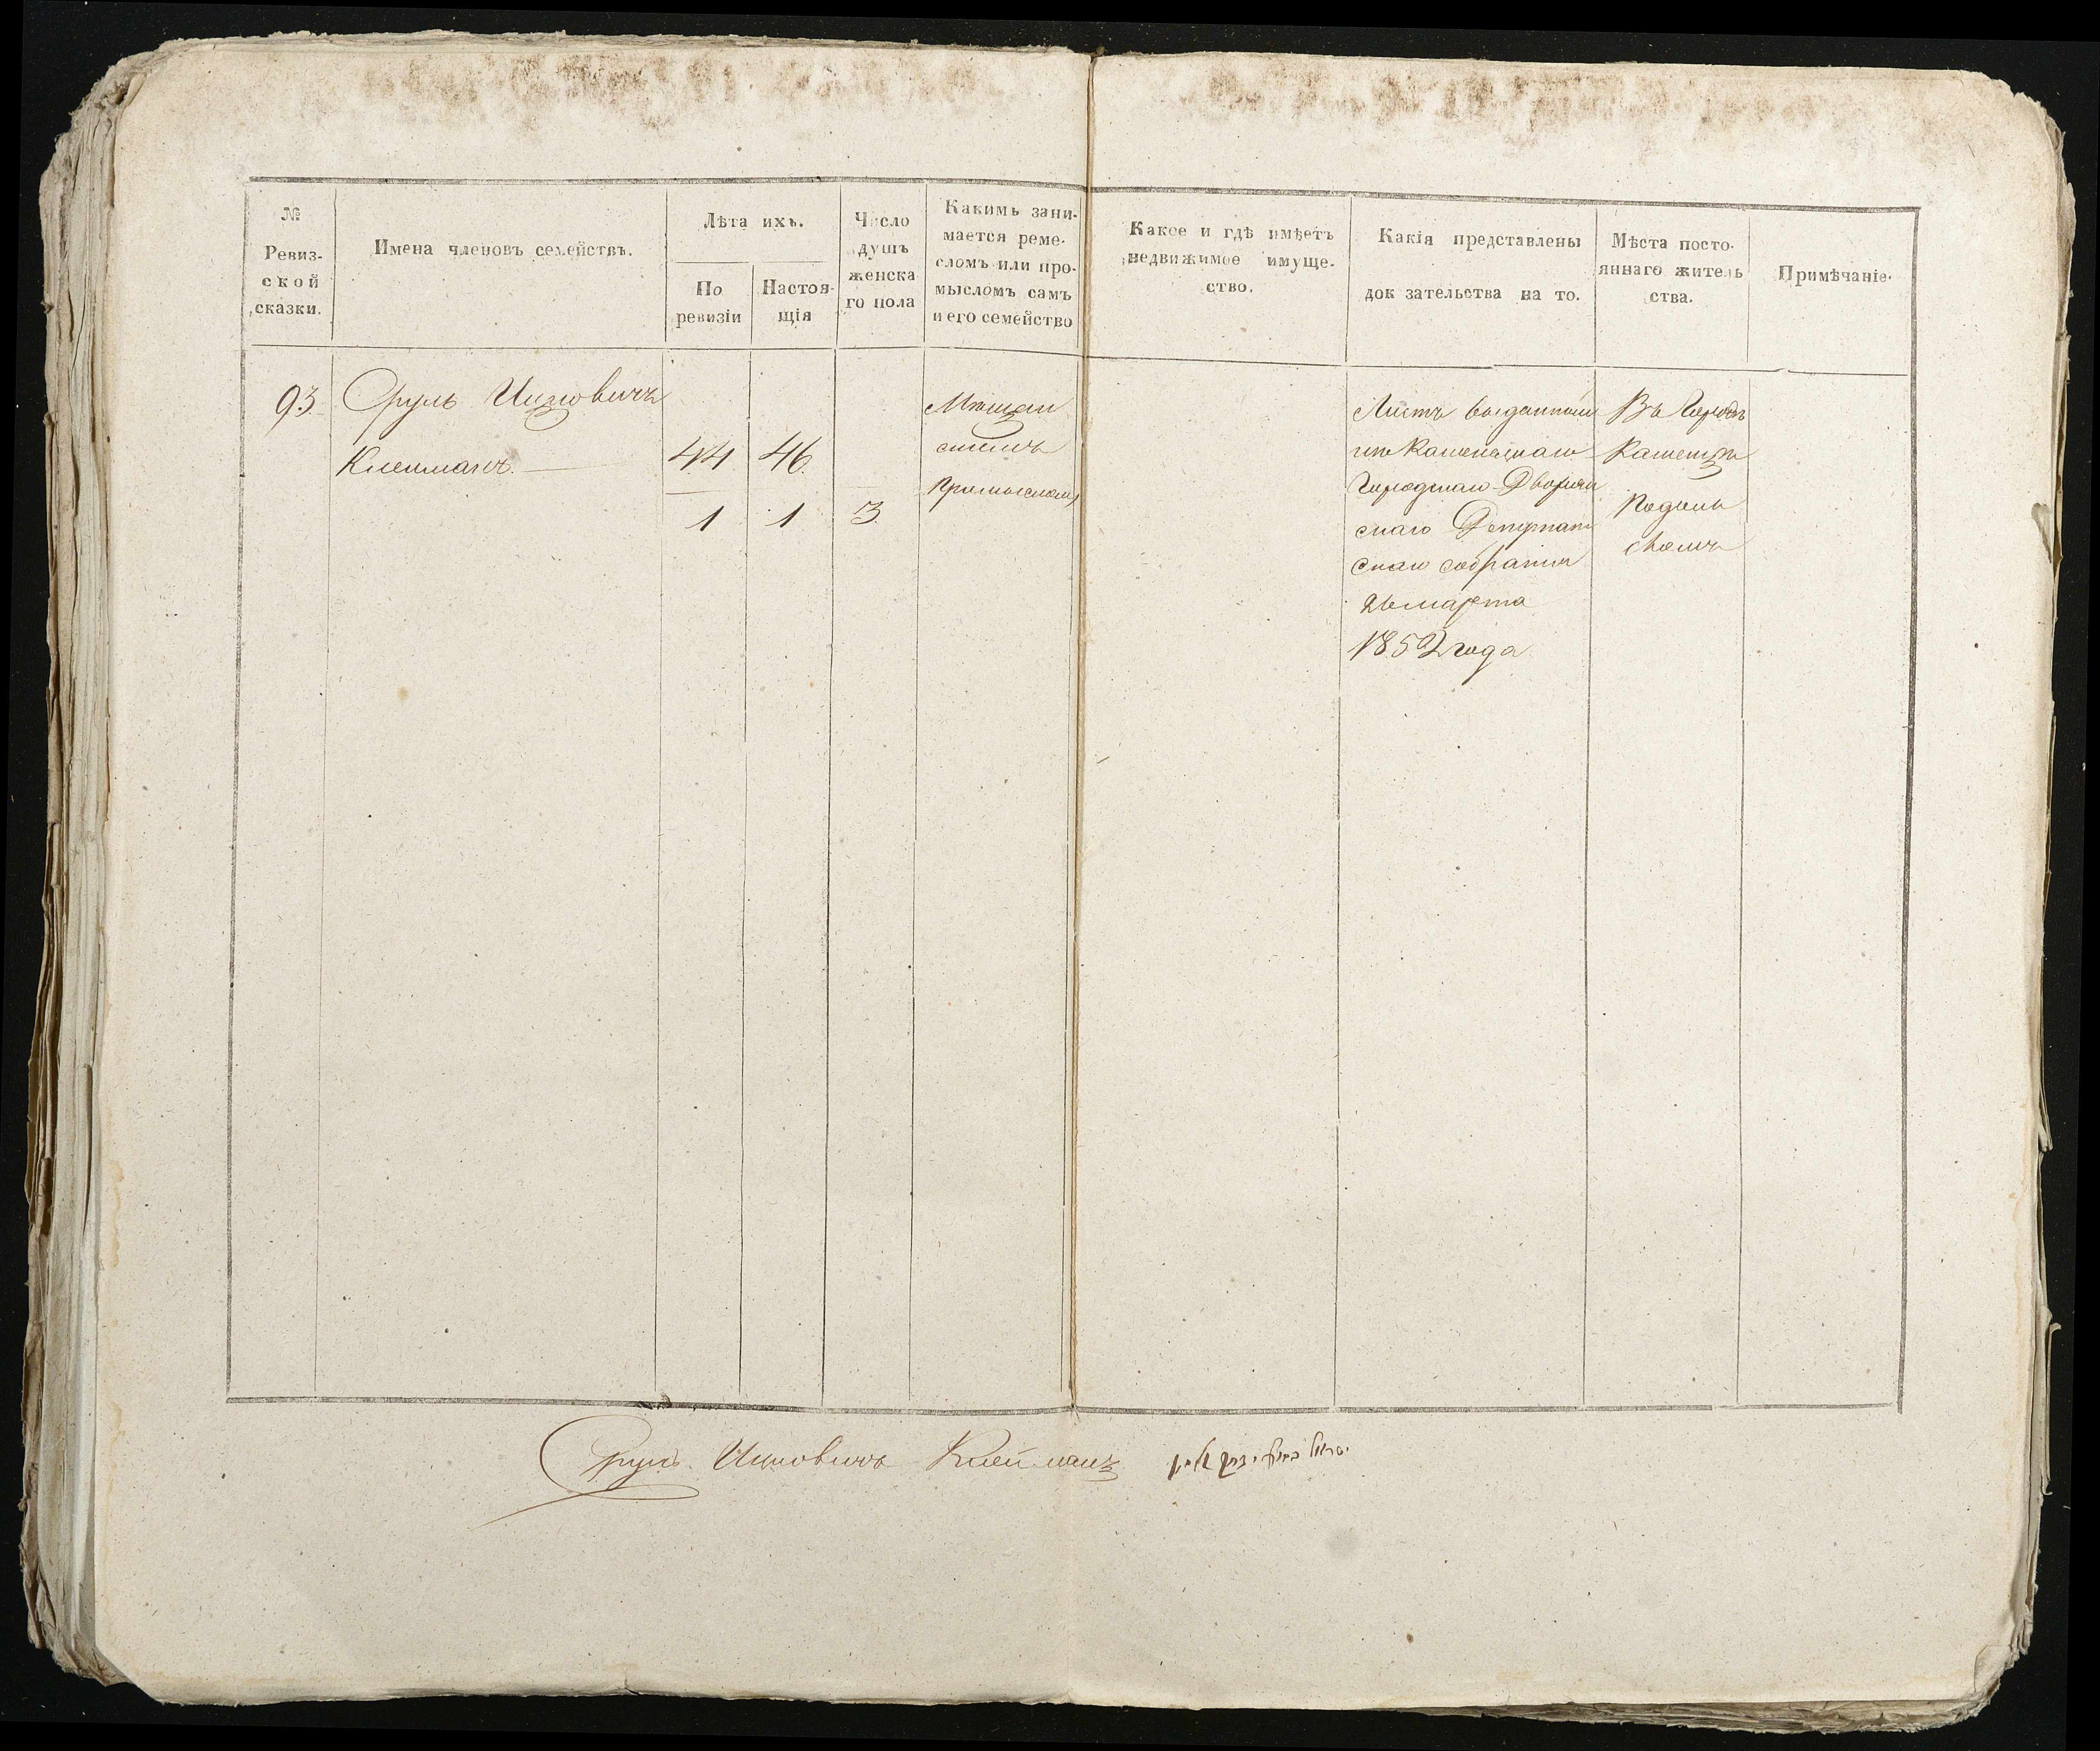 №
Ревиз-
ской
сказки.
Имена членовъ семействъ.
Лѣта ихъ.
По
ревизіи
Настоя-
щія
Число
душъ
женска
го пола
Какимъ зани-
мается реме-
сломъ или про-
мысломъ самъ
и его семейство
Какое и гдѣ имѣетъ
недвижимое имуще-
ство.
Какія представлены
док зательства на то.
Мѣста посто-
яннаго житель
ства.
Примѣчаніе.
93. Сруль Ицковичъ
Клейманъ.
44 46.
1 1 3.
Мѣщан
скимъ
промысломъ
Листъ выданный
изъ Каменецкаго
Городскаго Дворян
скаго Депутат
скаго собранія
26 марта
1852 года
Въ Городѣ
Каменцѣ
Подоль
скомъ
Сруль Ицковичъ Клейманъ